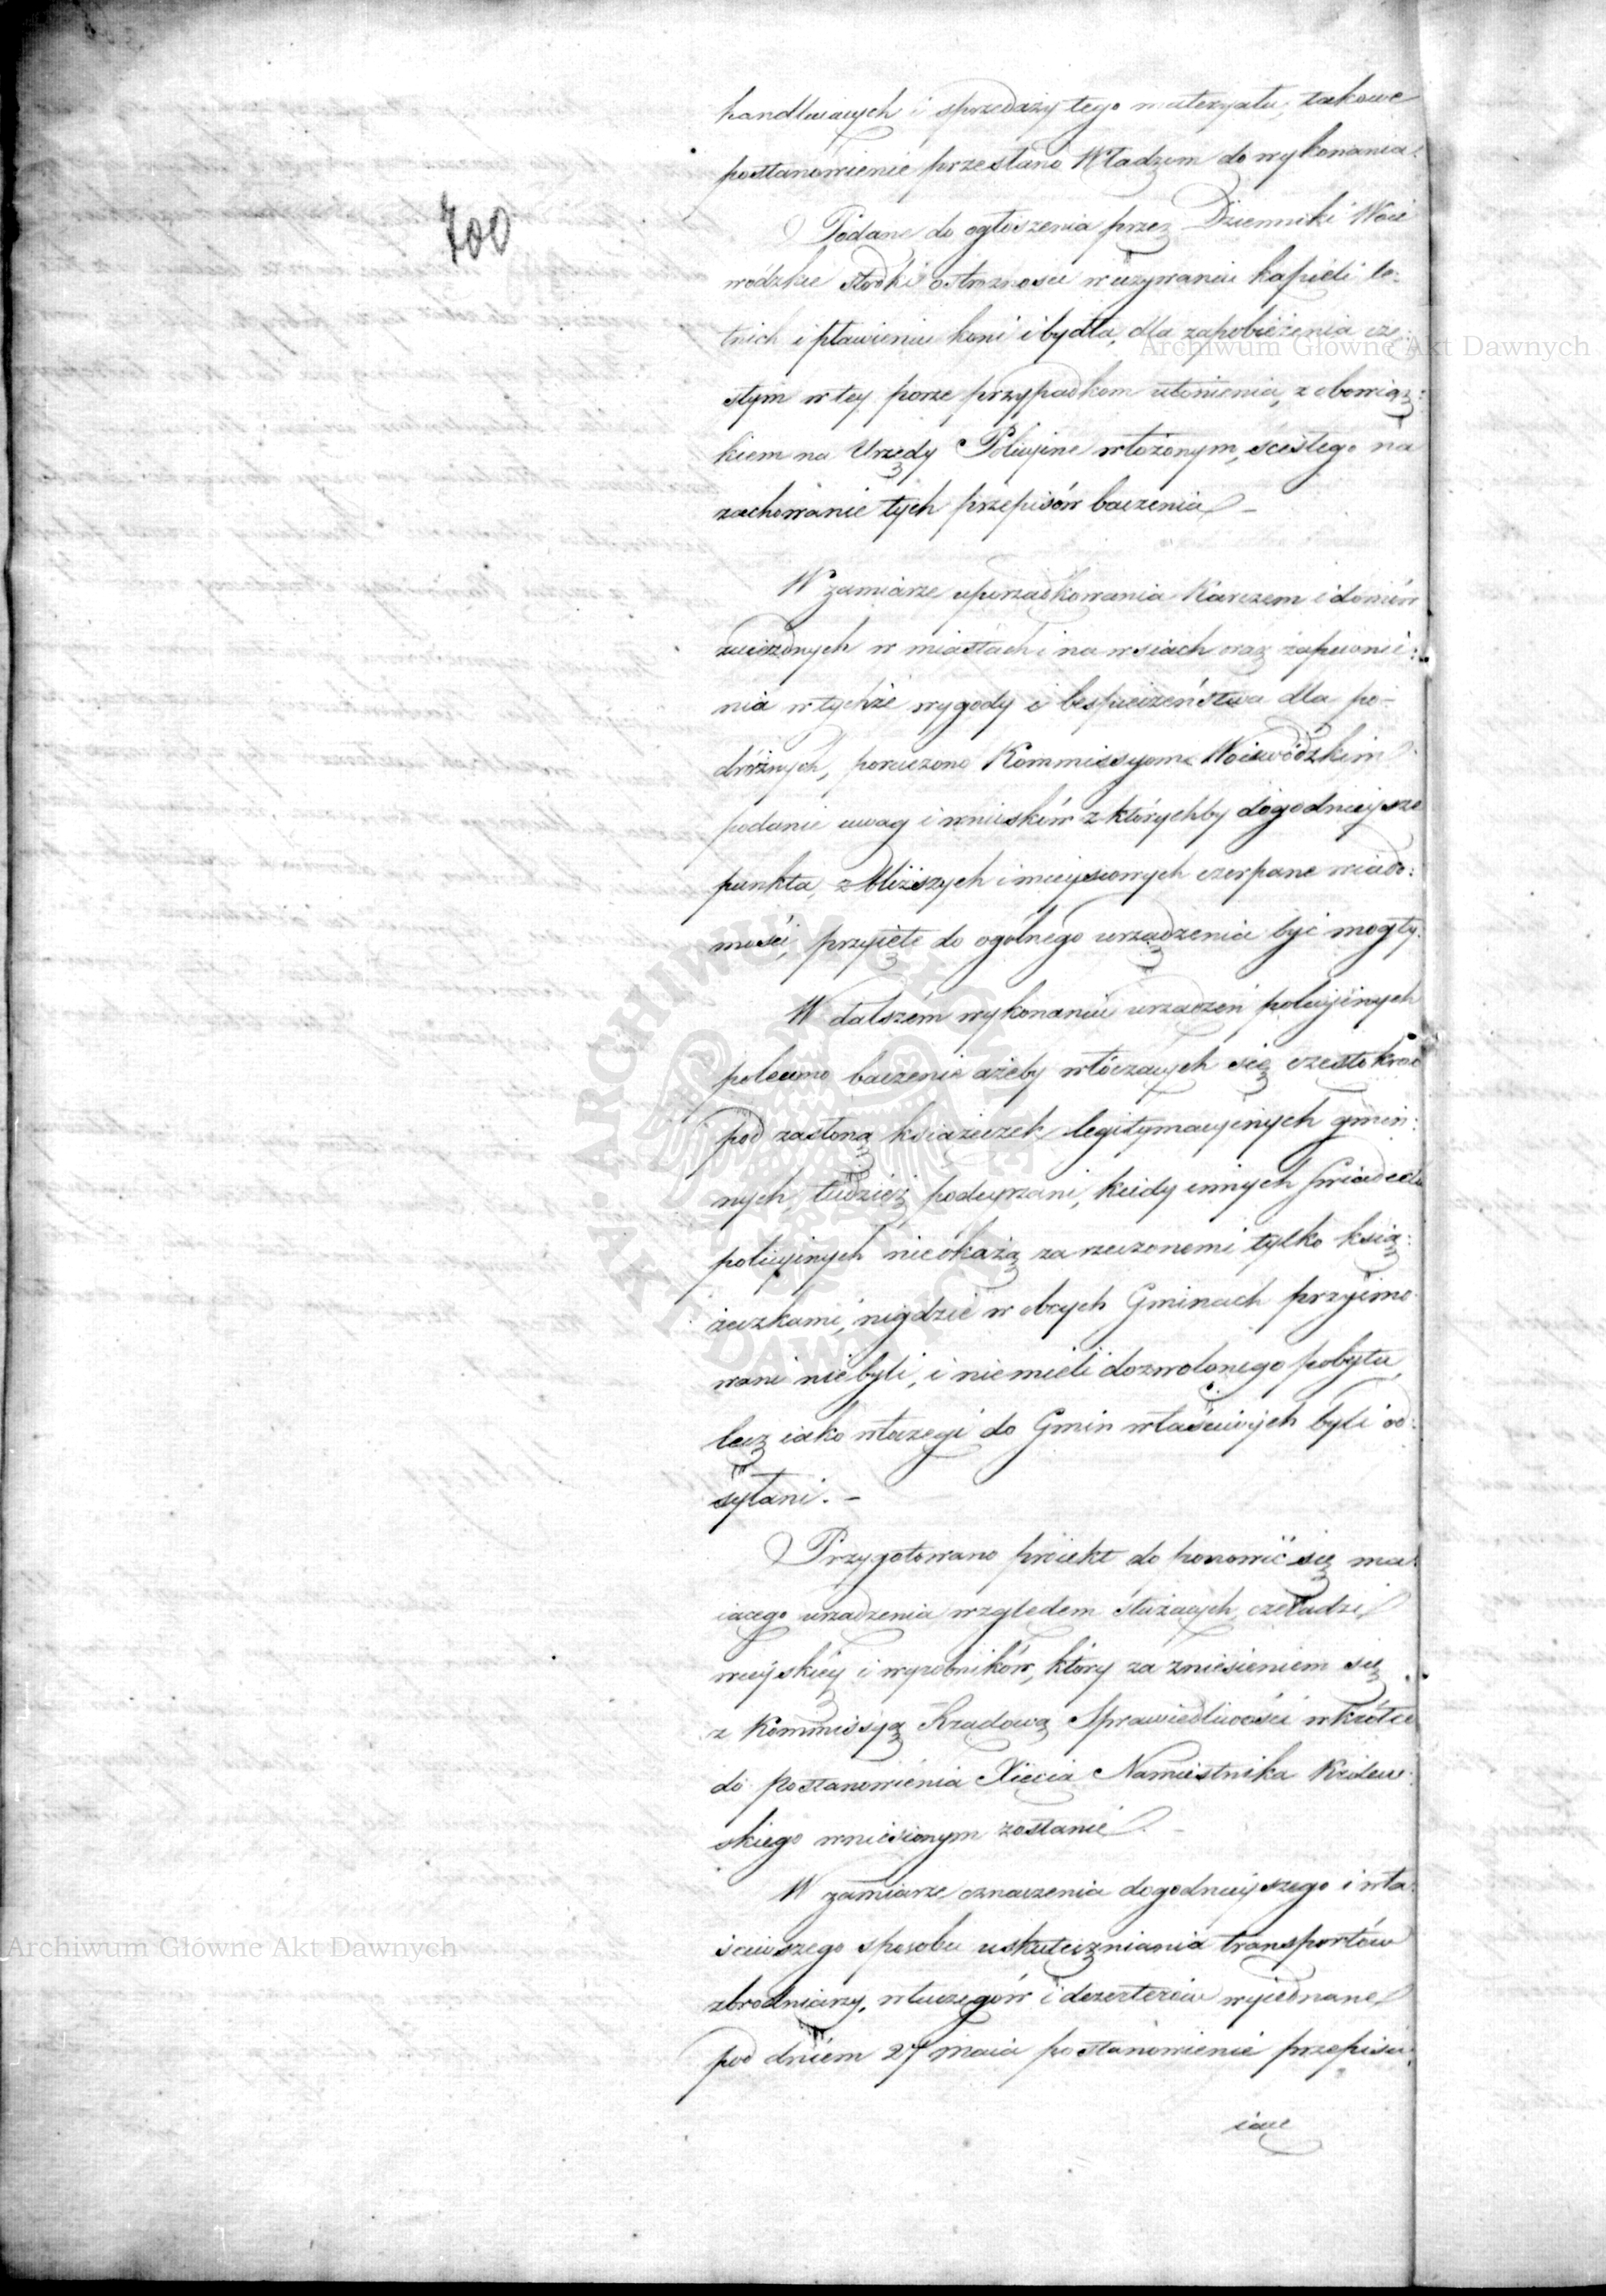 700
handluiących i sprzedaży tego materyału, takowe
postanowienie przesłano Władzom do wykonania.
Podane do ogłoszenia przez Dzienniki Woie
wódzkie środki ostrożności w używaniu kąpieli le-
tnich i pławieniu koni i bydła, dla zapobieżenia czę-
stym w tey porze przypadkom utonienia, z obowiąz:
kiem na Urzędy Policyine włożonym, scisłego na
zachowanie tych przepisów baczenia –
W zamiarze uporządkowania Karczem i domów
zaiezdnych w miastach i na wsiach oraz zapewnie:
nia w tychże wygody i bespieczeństwa dla po-
dróżnych, poruczono Kommissyom Woiewódzkim
podanie uwag i wniosków z którychby dogodnieysze
punkta, z bliższych i mieyscowych czerpane wiado:
mości, przyięte do ogólnego urządzenia być mogły.
W dalszém wykonaniu urządzeń policyinych
polecono baczenie ażeby włóczących się częstokroć
pod zasłoną książeczek legitymacyinych gmin:
nych, tudzież podeyrzani, kiedy innych świadectw
policyinych nieokażą za rzeczonemi tylko ksią:
żeczkami, nigdzie w obcych Gminach przyimo
wani nie byli, i niemieli dozwolonego pobytu,
lecz iako włozegi do Gmin właściwych byli od:
syłani. –
Przygotowano proiekt do ponowić się ma:
iącego urządzenia względem służących, czeladzi
wieyskiéy i wyrobników, który za zniesieniem się
z Kommissyą Rządową Sprawiedliwości wkrótce
do postanowienia Xięcia Namiestnika Królew:
skiego wniesionym zostanie –
W zamiarze oznaczenia dogodnieyszego i wła:
ściwszego sposobu uskuteczniania transportów
zbrodniarzy, włuczęgów i dezerterów wyiednane
pod dniem 27 Maia postanowienie przepisu:
iące
Archiwum Główne Akt Dawnych
Archiwum Główne Akt Dawnych
ARCHIWUM GŁÓWNE AKT DAWNYCH